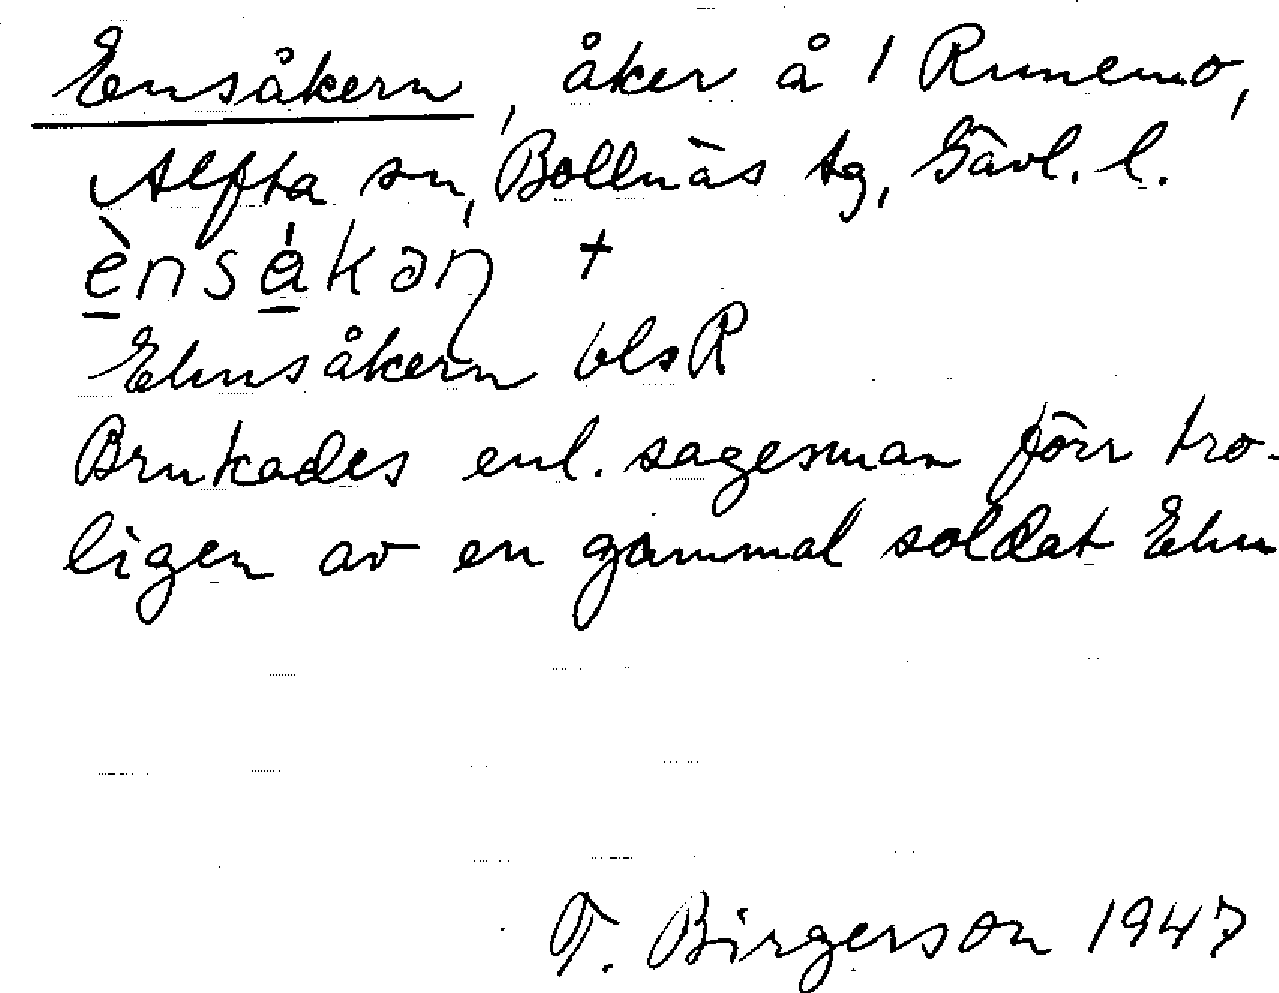 Ensåkern, åker å 1 Runemo,
Alfta sn, Bollnäs tg, Gävl. l.
è̲nsá̲kəṇ +
Ehnsåkern blsR
Brukades enl. sagesman förr tro-
ligen av en gammal soldat Ehn
T. Birgerson 1947